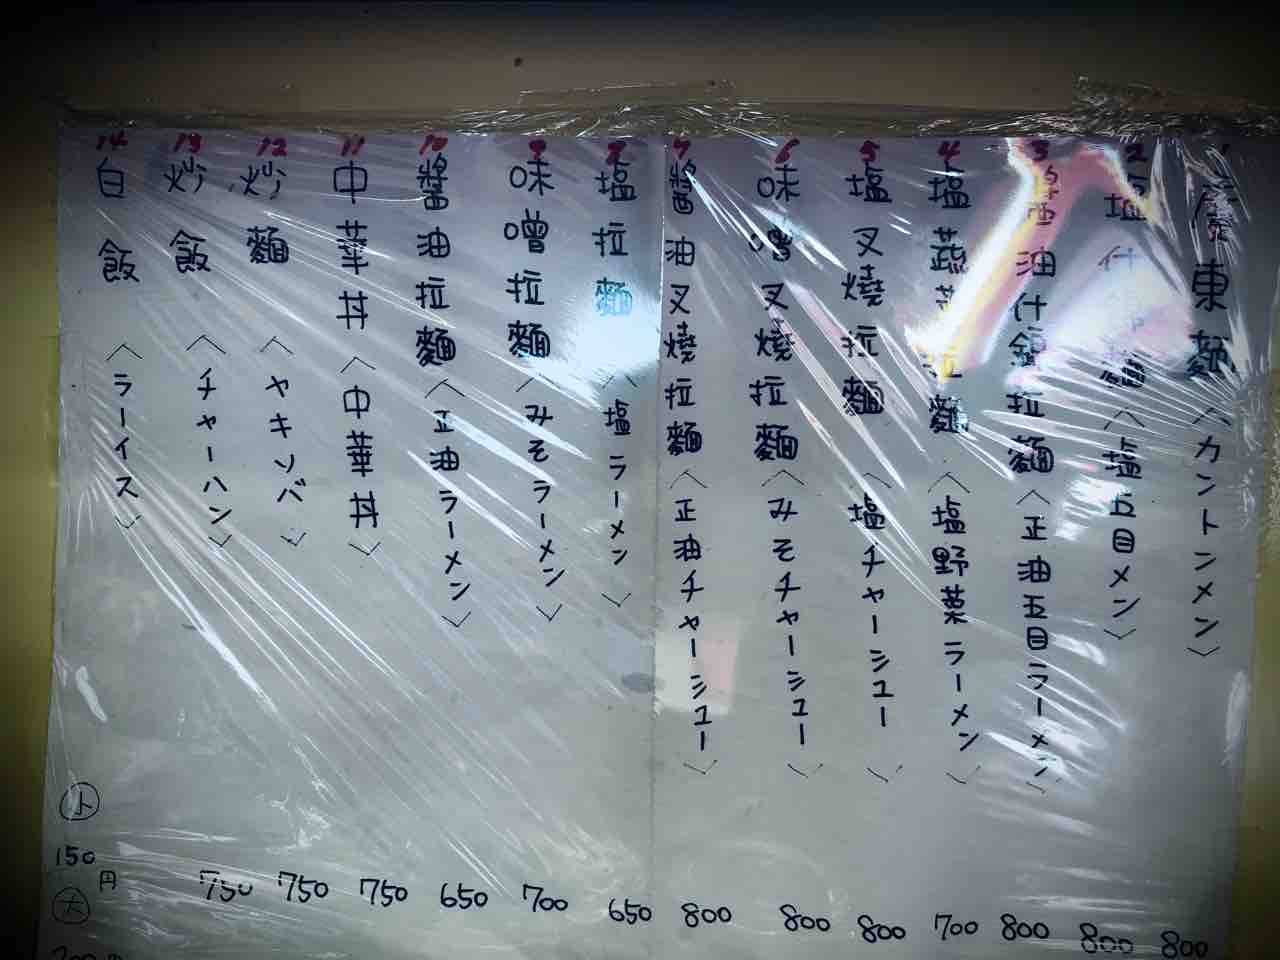 1 廣東麺〈カントンメン〉 800
2 塩什錦麺〈塩五目メン〉 800
3 醤油什錦拉麺〈正油五目ラーメン〉 800
4 塩蔬菜拉麺〈塩野菜ラーメン〉 700
5 塩叉焼拉麺〈塩チャーシュー〉 800
6 味噌叉焼拉麺〈みそチャーシュー〉 800
7 醤油叉焼拉麺〈正油チャーシュー〉 800
8 塩拉麺〈塩ラーメン〉 650
9 味噌拉麺〈みそラーメン〉 700
10 醤油拉麺〈正油ラーメン〉 650
11 中華丼〈中華丼〉 750
12 炒麺〈ヤキソバ〉 750
13 炒飯〈チャーハン〉 750
14 白飯〈ラーイス〉 小 150円 大